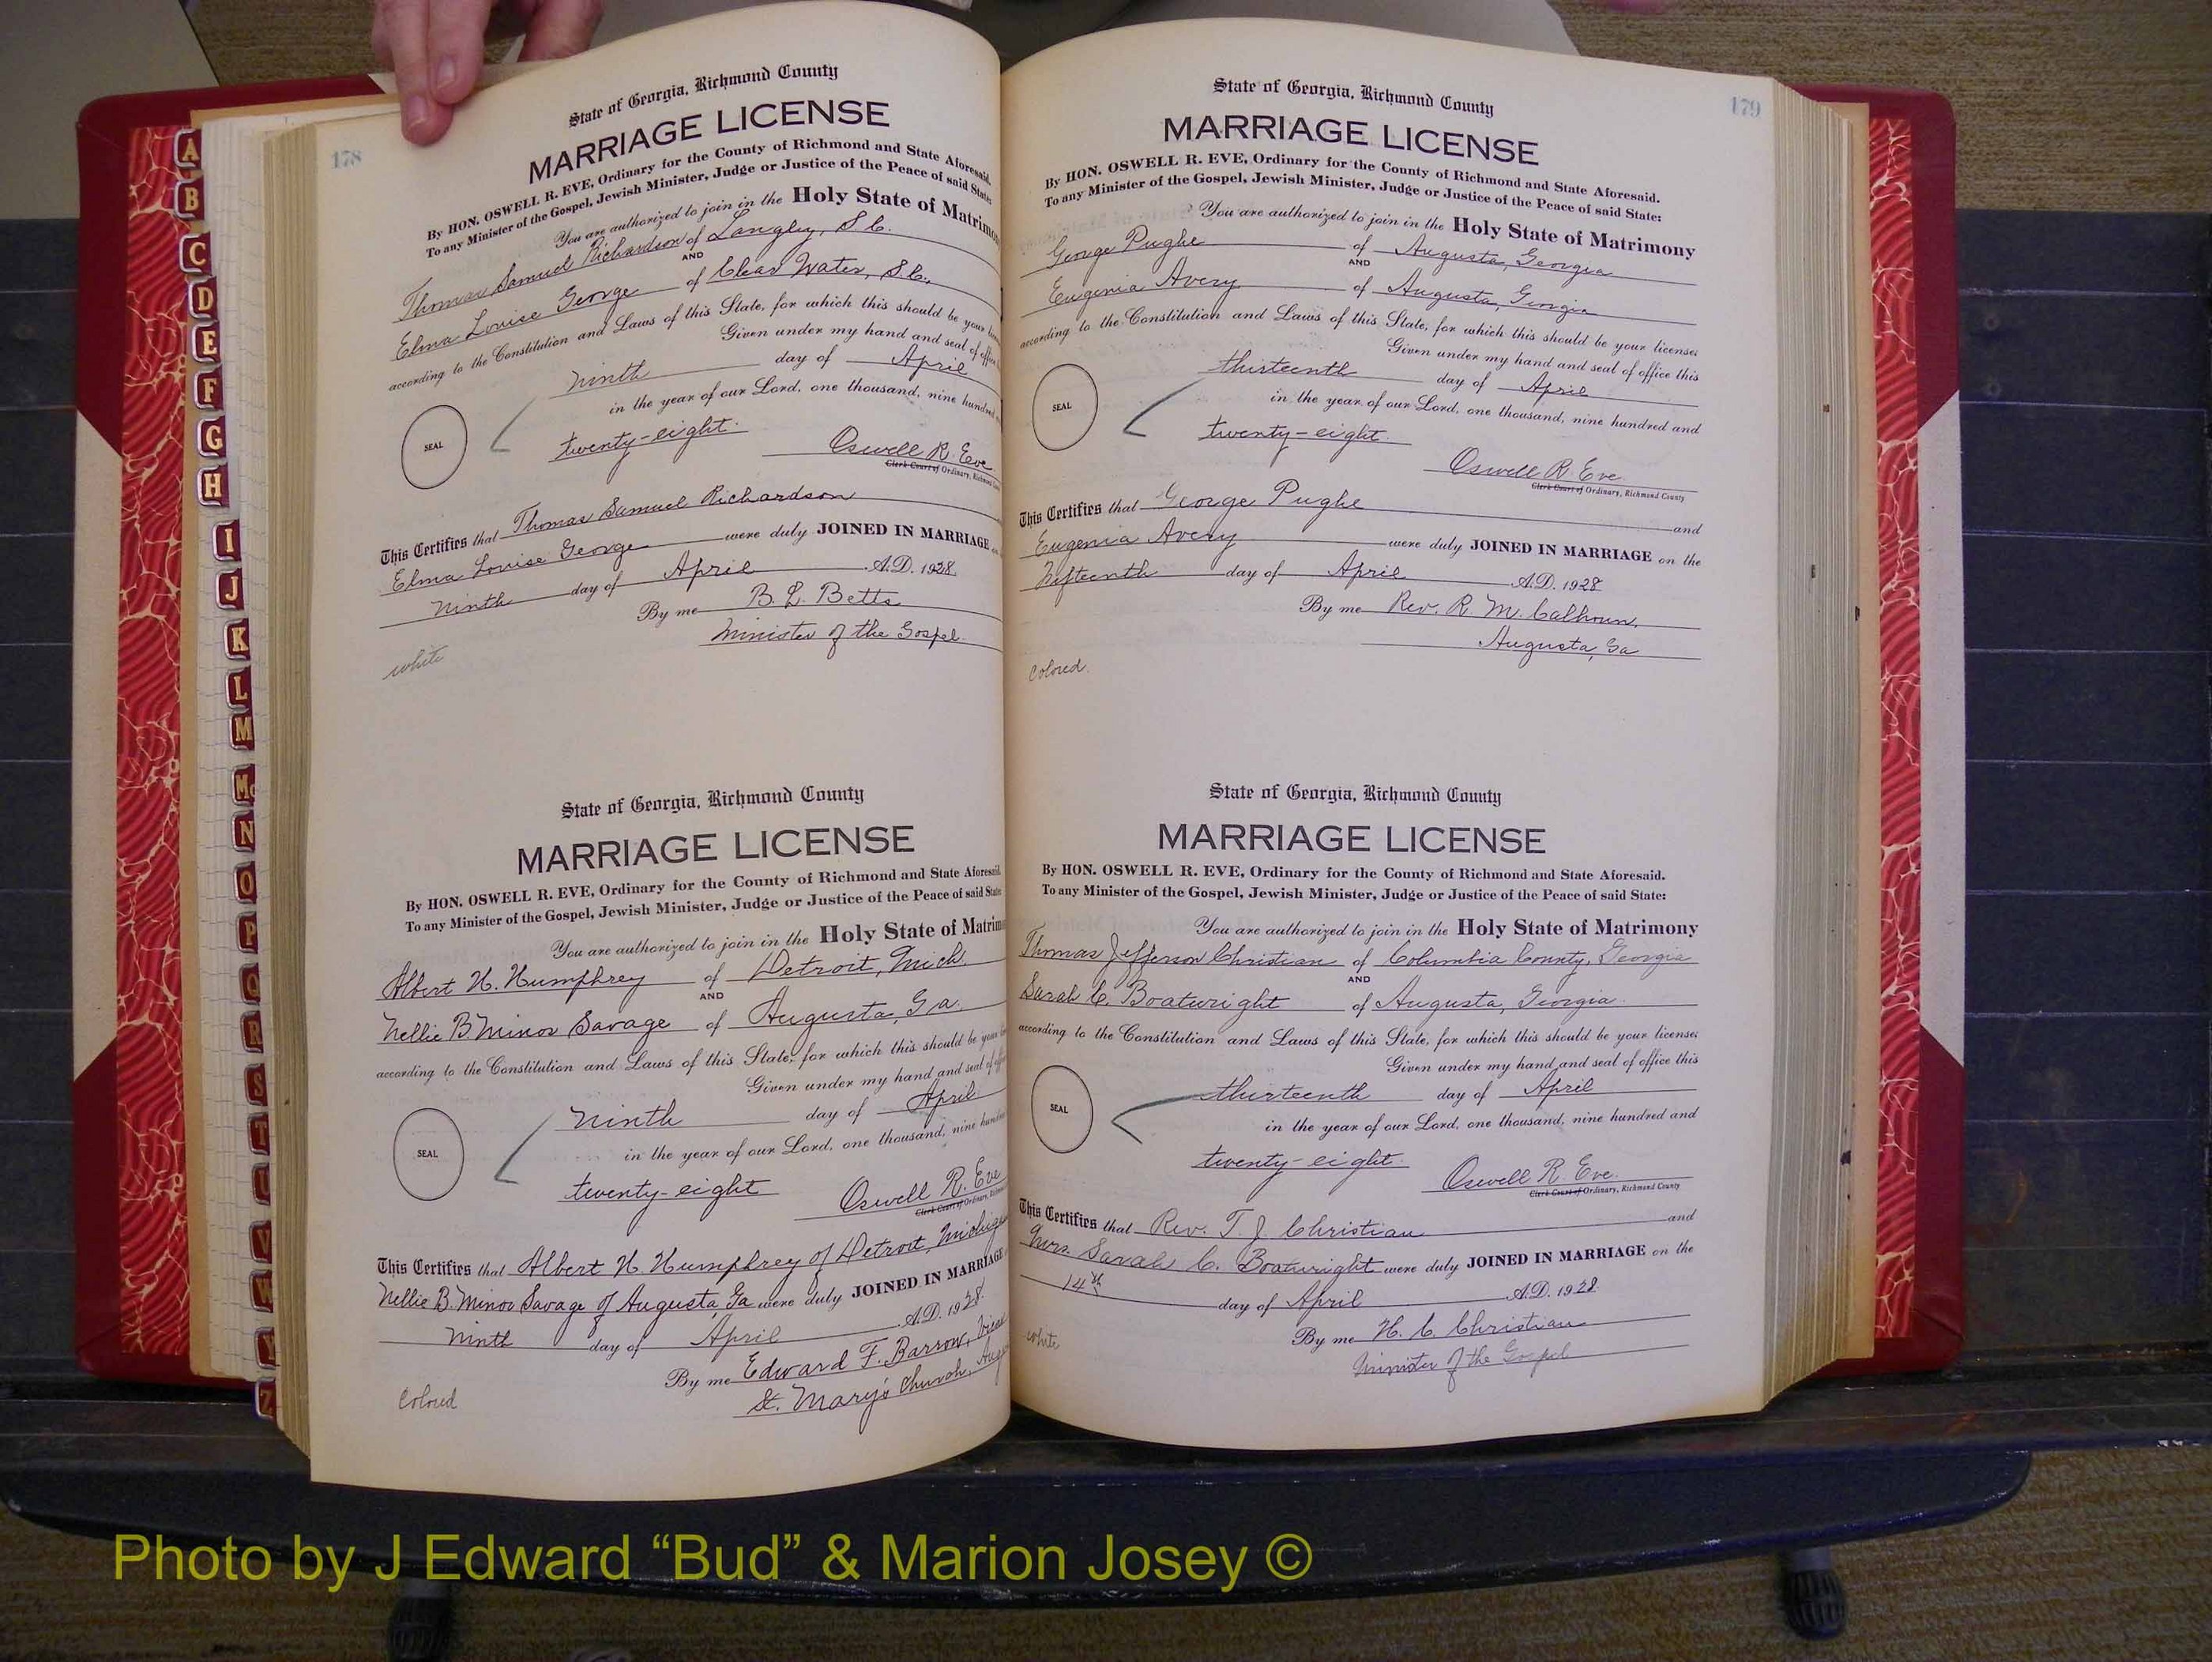 A
B
C
D
E
F
G
H
I
J
K
L
M
Mc
N
O
P
Q
R
S
T
U
V
W
Y
Z
178
State of Georgia, Richmond County
MARRIAGE LICENSE
By HON. OSWELL R. EVE, Ordinary for the County of Richmond and State Aforesaid.
To any Minister of the Gospel, Jewish Minister, Judge or Justice of the Peace of said State:
You are authorized to join in the Holy State of Matrimony
Thomas Samuel Richardson of Langley, S.C.
AND
Elma Louise George of Clear Water, S.C.,
according to the Constitution and Laws of this State, for which this should be your
Given under my hand and seal of office
ninth day of April
in the year of our Lord, one thousand, nine hundred
SEAL
twenty-eight.
Oswell R. Eve
Clerk Court of Ordinary, Richmond
This Certifies that Thomas Samuel Richardson
Elma Louise George were duly JOINED IN MARRIAGE
ninth day of April A.D. 1928.
By me B. L. Betts
Minister of the Gospel
white
State of Georgia, Richmond County
MARRIAGE LICENSE
By HON. OSWELL R. EVE, Ordinary for the County of Richmond and State Aforesaid.
To any Minister of the Gospel, Jewish Minister, Judge or Justice of the Peace of said State
You are authorized to join in the Holy State of Matrim
Albert H. Humphrey of Detroit, Mich.
AND
Nellie B. Minor Savage of Augusta, Ga.
according to the Constitution and Laws of this State, for which this should be your
Given under my hand and seal of
ninth day of April
in the year of our Lord, one thousand, nine hundred
SEAL
twenty-eight
Oswell R. Eve
Clerk Court of Ordinary,
This Certifies that Albert H. Humphrey of Detroit, Michiga
Nellie B. Minor Savage of Augusta, Ga were duly JOINED IN MARRIAGE
Ninth day of April A.D. 1928.
By me Edward F. Barrow,
St. Mary's Church,
Colored
179
State of Georgia, Richmond County
MARRIAGE LICENSE
By HON. OSWELL R. EVE, Ordinary for the County of Richmond and State Aforesaid.
To any Minister of the Gospel, Jewish Minister, Judge or Justice of the Peace of said State:
You are authorized to join in the Holy State of Matrimony
George Pughe of Augusta, Georgia
AND
Eugenia Avery of Augusta, Georgia
according to the Constitution and Laws of this State, for which this should be your license;
Given under my hand and seal of office this
thirteenth day of April
in the year of our Lord, one thousand, nine hundred and
SEAL
twenty-eight.
Oswell R. Eve.
Clerk Court of Ordinary, Richmond County
This Certifies that George Pughe and
Eugenia Avery were duly JOINED IN MARRIAGE on the
Fifteenth day of April A.D. 1928
By me Rev. R. M. Calhoun,
Augusta, Ga
Colored.
State of Georgia, Richmond County
MARRIAGE LICENSE
By HON. OSWELL R. EVE, Ordinary for the County of Richmond and State Aforesaid.
To any Minister of the Gospel, Jewish Minister, Judge or Justice of the Peace of said State:
You are authorized to join in the Holy State of Matrimony
Thomas Jefferson Christian of Columbia County, Georgia
AND
Sarah C. Boatwright of Augusta, Georgia.
according to the Constitution and Laws of this State, for which this should be your license;
Given under my hand and seal of office this
thirteenth day of April
in the year of our Lord, one thousand, nine hundred and
SEAL
twenty-eight.
Oswell R. Eve.
Clerk Court of Ordinary, Richmond County
This Certifies that Rev. T. J. Christian and
Mrs. Sarah C. Boatwright were duly JOINED IN MARRIAGE on the
14th day of April A.D. 1928.
By me H. C. Christian
Minister of the Gospel
white
Photo by J Edward “Bud” & Marion Josey ©